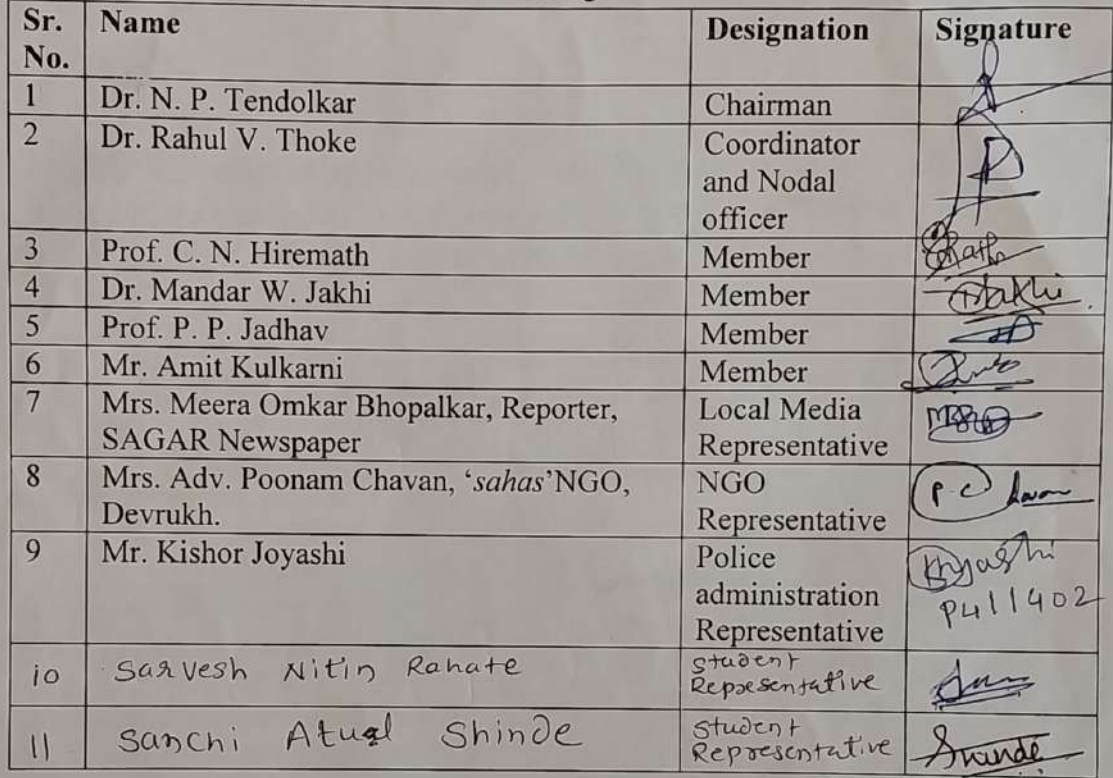 Sr. No. Name Designation Signature
1 Dr. N. P. Tendolkar Chairman
2 Dr. Rahul V. Thoke Coordinator
and Nodal
officer
3 Prof. C. N. Hiremath Member
4 Dr. Mandar W. Jakhi Member
5 Prof. P. P. Jadhav Member
6 Mr. Amit Kulkarni Member
7 Mrs. Meera Omkar Bhopalkar, Reporter, Local Media
SAGAR Newspaper Representative
8 Mrs. Adv. Poonam Chavan, ‘sahas’NGO, NGO
Devrukh. Representative
9 Mr. Kishor Joyashi Police
administration
Representative
P411402
10 Sarvesh Nitin Rahate Student
Representative
11 Sanchi Atual Shinde Student
Representative Shinde